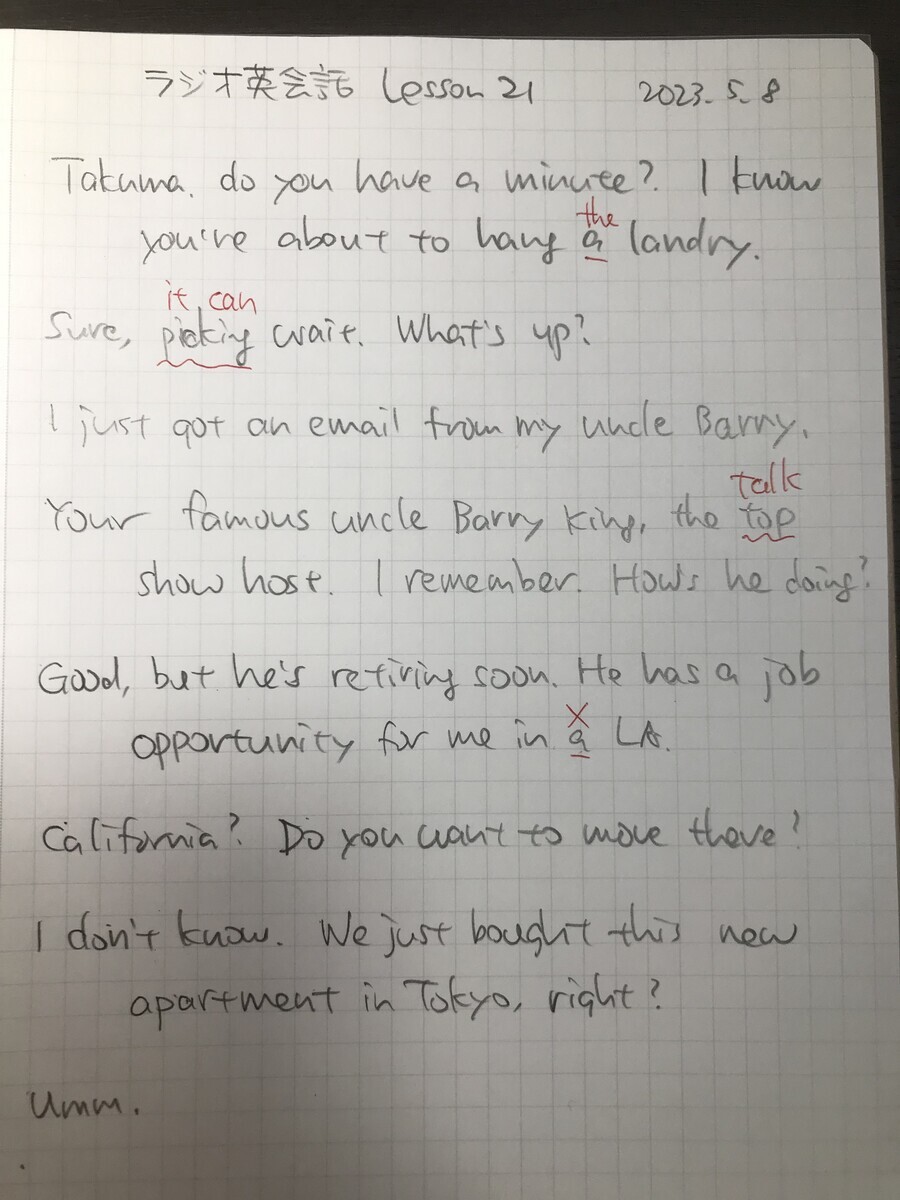 ラジオ英会話 Lesson 21 2023. 5. 8
Takuma, do you have a minute? I know
the
you're about to hang a landry.
it can
Sure, picking wait. What's up?
I just got an email from my uncle Barry.
talk
Your famous uncle Barry King, the top
show host. I remember. How's he doing?
Good, but he's retiring soon. He has a job
×
opportunity for me in a LA.
California? Do you want to move there?
I don't know. We just bought this new
apartment in Tokyo, right?
Umm.